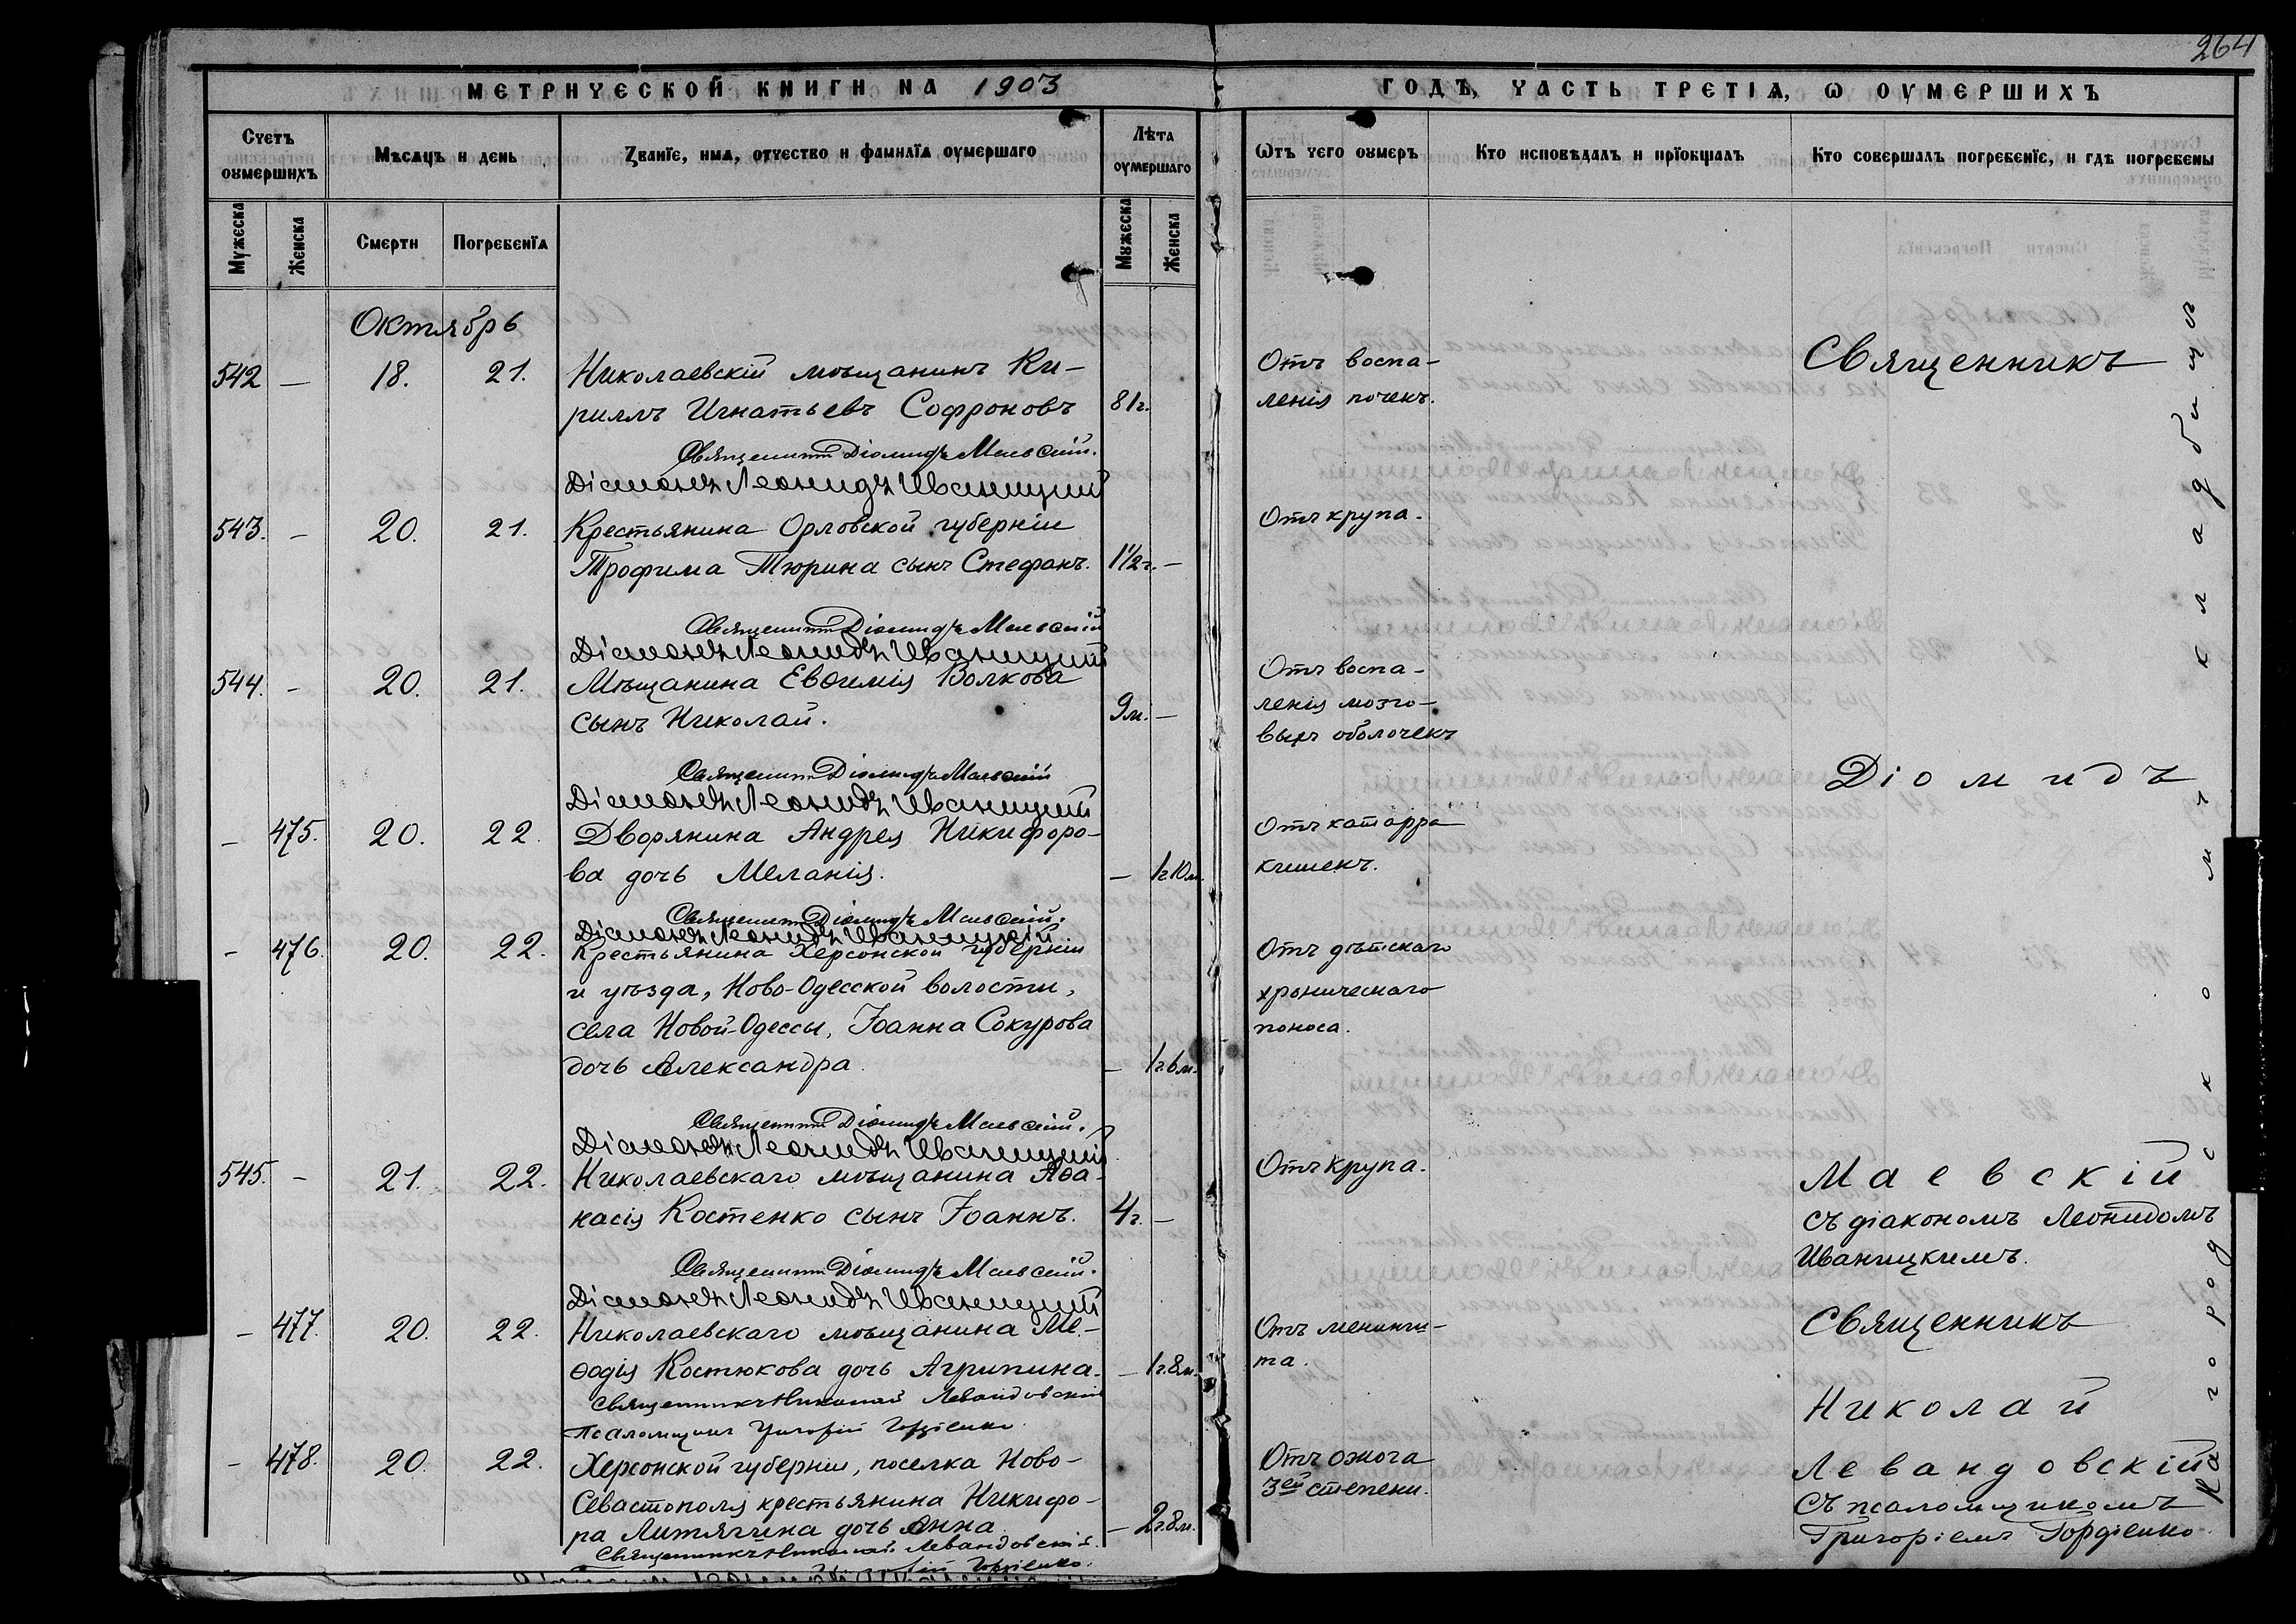 264
МЕТРИЧЕСКОЙ КНИГИ НА 1903 ГОДЪ, ЧАСТЬ ТРЕТІѦ, Ѡ ОУМЕРШИХЪ
Счетъ оумершихъ
Мѣсѧцъ и день
Званїе, имѧ, отчество и фамилїѧ оумершаго
Лѣта оумершаго
Ѿтъ чего оумеръ
Кто исповѣдалъ и прїобщалъ
Кто совершалъ погребенїе, и гдѣ погребены
Мужеска
Женска
Смерти
Погребенїѧ
Мужеска
Женска
Октябрь
542 — 18. 21. Николаевскій мѣщанинъ Ки-
риллъ Игнатьевъ Софроновъ 81г.
Отъ воспа-
ленія почекъ.
Священникъ Діомидъ Маевскій.
Діаконъ Леонидъ Иваницкій
543. — 20. 21. Крестьянина Орловской губерніи
Трофима Тюрина сынъ Стефанъ. 1½г. —
Отъ крупа.
Священникъ Діомидъ Маевскій
Діаконъ Леонидъ Иваницкій
544. — 20. 21. Мѣщанина Евѳимія Волкова
сынъ Николай. 9м. —
Отъ воспа-
ленія мозго-
выхъ оболочекъ
Священникъ Діомидъ Маевскій
Діаконъ Леонидъ Иваницкій
— 475. 20. 22. Дворянина Андрея Никифоро-
ва дочь Меланія. — 1г.10м.
Отъ катарра
кишекъ.
Священникъ Діомидъ Маевскій.
Діаконъ Леонидъ Иваницкій
— 476. 20. 22. Крестьянина Херсонской губерніи
и уѣзда, Ново-Одесской волости,
села Новой-Одессы, Іоанна Сокурова
дочь Александра. — 1г.6м.
Отъ дѣтскаго
хроническаго
поноса.
Священникъ Діомидъ Маевскій.
Діаконъ Леонидъ Иваницкій
545. — 21. 22. Николаевскаго мѣщанина Аѳа-
насія Костенко сынъ Іоаннъ. 4г. —
Отъ крупа.
Священникъ Діомидъ Маевскій.
Діаконъ Леонидъ Иваницкій
— 477. 20. 22. Николаевскаго мѣщанина Ме-
ѳодія Костюкова дочь Агрипина. — 1г.8м.
Отъ менинги-
та.
Священникъ Николай Левандовскій
Псаломщикъ Григорій Гордіенко
— 478. 20. 22. Херсонской губерніи, поселка Ново-
Севастополя крестьянина Никифо-
ра Литягина дочь Анна — 2г.8м.
Отъ ожога
3ей степени.
Священникъ Николай Левандовскій.
Григорій Гордіенко.
Священникъ
Діомидъ
Маевскій
съ діакономъ Леонидомъ
Иваницкимъ.
Священникъ
Николай
Левандовскій
съ псаломщикомъ
Григоріемъ Гордіенко.
На городскомъ кладбищѣ